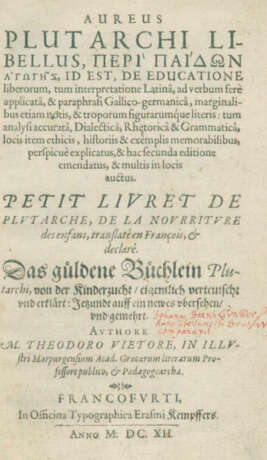 AUREUS
PLUTARCHI LI-
BELLUS, ΠΕΡΙ ΠΑΙΔΩΝ
ἀγωγῆς, ID EST, DE EDUCATIONE
liberorum, tum interpretatione Latinâ, ad verbum ferè
applicatâ, & paraphrasi Gallico-germanicâ, marginali-
bus etiam notis, & troporum figurarumque literis: tum
analysi accuratâ, Dialecticâ, Rhetoricâ & Grammaticâ,
locis item ethicis, historiis & exemplis memorabilibus,
perspicuè explicatus, & hac secunda editione
emendatus, & multis in locis
auctus.
PETIT LIVRET DE
PLVTARCHE, DE LA NOVRRITVRE
des enfans, translaté en François, &
declaré.
Das güldene Büchlein Plu-
tarchi, von der Kinderzucht / eigentlich verteutscht
vnd erklärt: Jetzundt auff ein newes vbersehen /
vnd gemehrt.
AVTHORE
M. THEODORO VIETORE, IN ILLV-
stri Marpurgensium Acad. Græcarum literarum Pro-
fessore publico, & Pædagogearcha.
FRANCOFVRTI,
In Officina Typographica Erasmi Kempfferi.
ANNO M. DC. XII.